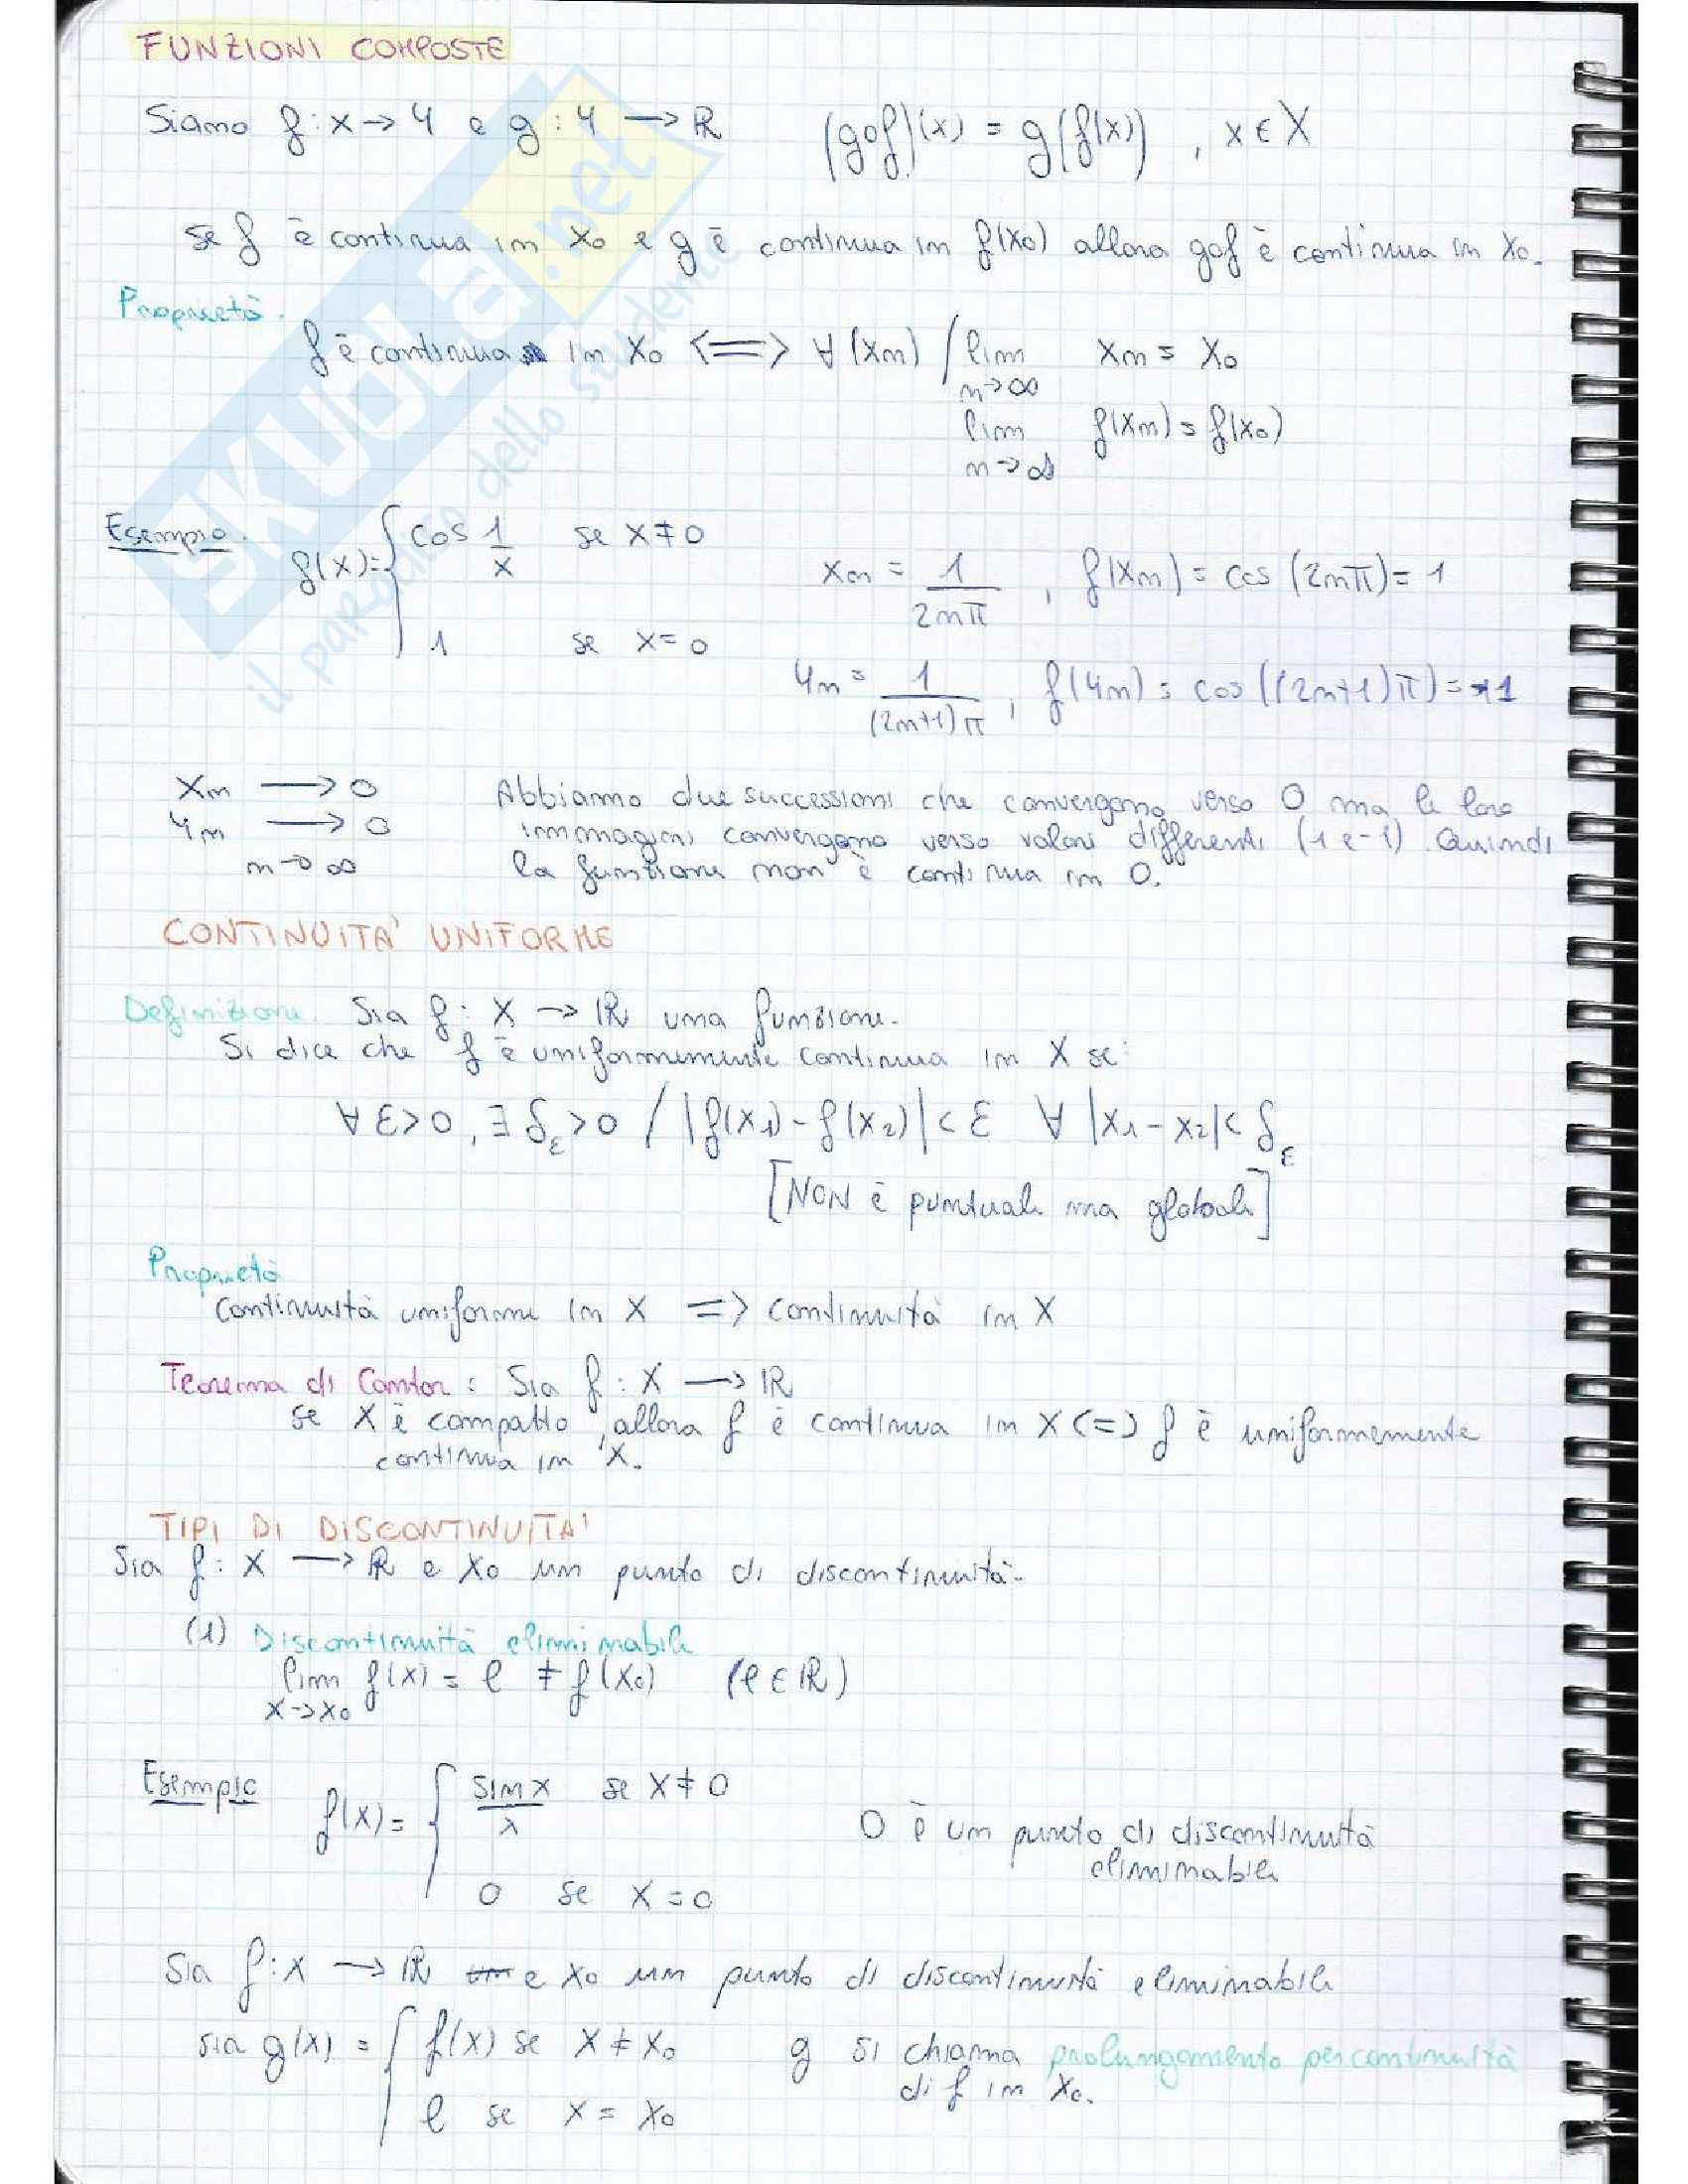 FUNZIONI COMPOSTE
Siamo f : X → Y e g : Y → ℝ (g∘f)(x) = g(f(x)) , x ∈ X
se f è continua in x₀ e g è continua in f(x₀) allora g∘f è continua in x₀.
Proprietà.
f è continua in x₀ <=> ∀ (xn) / lim n→∞ xn = x₀
lim n→∞ f(xn) = f(x₀)
Esempio. f(x) = { cos 1/x se x ≠ 0
1 se x = 0
xn = 1/(2nπ) , f(xn) = cos (2nπ) = 1
yn = 1/((2n+1)π) , f(yn) = cos((2n+1)π) = -1
xn → 0
yn → 0
n → ∞
Abbiamo due successioni che convergono verso 0 ma le loro
immagini convergono verso valori differenti (1 e -1). Quindi
la funzione non è continua in 0.
CONTINUITA' UNIFORME
Definizione. Sia f : X → ℝ una funzione.
Si dice che f è uniformemente continua in X se:
∀ ε > 0, ∃ δε > 0 / |f(x₁) - f(x₂)| < ε ∀ |x₁ - x₂| < δε
[NON è puntuale ma globale]
Proprietà
continuità uniforme in X => continuità in X
Teorema di Cantor : Sia f : X → ℝ
se X è compatto, allora f è continua in X <=> f è uniformemente
continua in X.
TIPI DI DISCONTINUITA'
Sia f : X → ℝ e x₀ un punto di discontinuità.
(1) Discontinuità eliminabile
lim x→x₀ f(x) = ℓ ≠ f(x₀) (ℓ ∈ ℝ)
Esempio f(x) = { sin x / x se x ≠ 0
0 se x = 0
0 è un punto di discontinuità
eliminabile
Sia f : X → ℝ e x₀ un punto di discontinuità eliminabile
sia g(x) = { f(x) se x ≠ x₀
ℓ se x = x₀
g si chiama prolungamento per continuità
di f in x₀.
SKUOLA.net
il paradiso dello studente